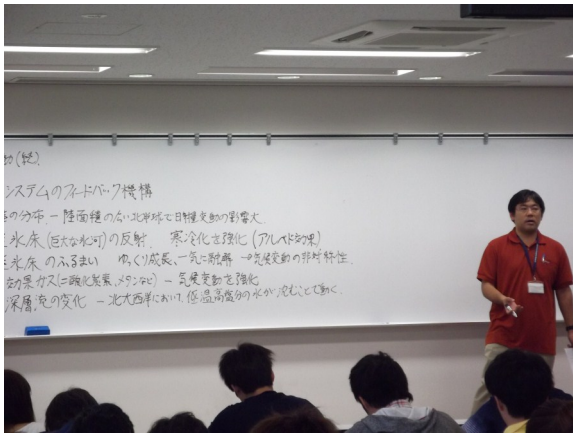 動(続)
システムのフィードバック機構
の分布 － 陸面積の広い北半球で日射変動の影響大
氷床(巨大な氷河)の反射 寒冷化を強化 (アルベド効果)
氷床のふるまい ゆっくり成長、一気に融解 →気候変動の非対称性
効果ガス(二酸化炭素、メタンなど) － 気候変動を強化
深層流の変化 － 北大西洋において、低温高塩分の水が沈むことで動く.